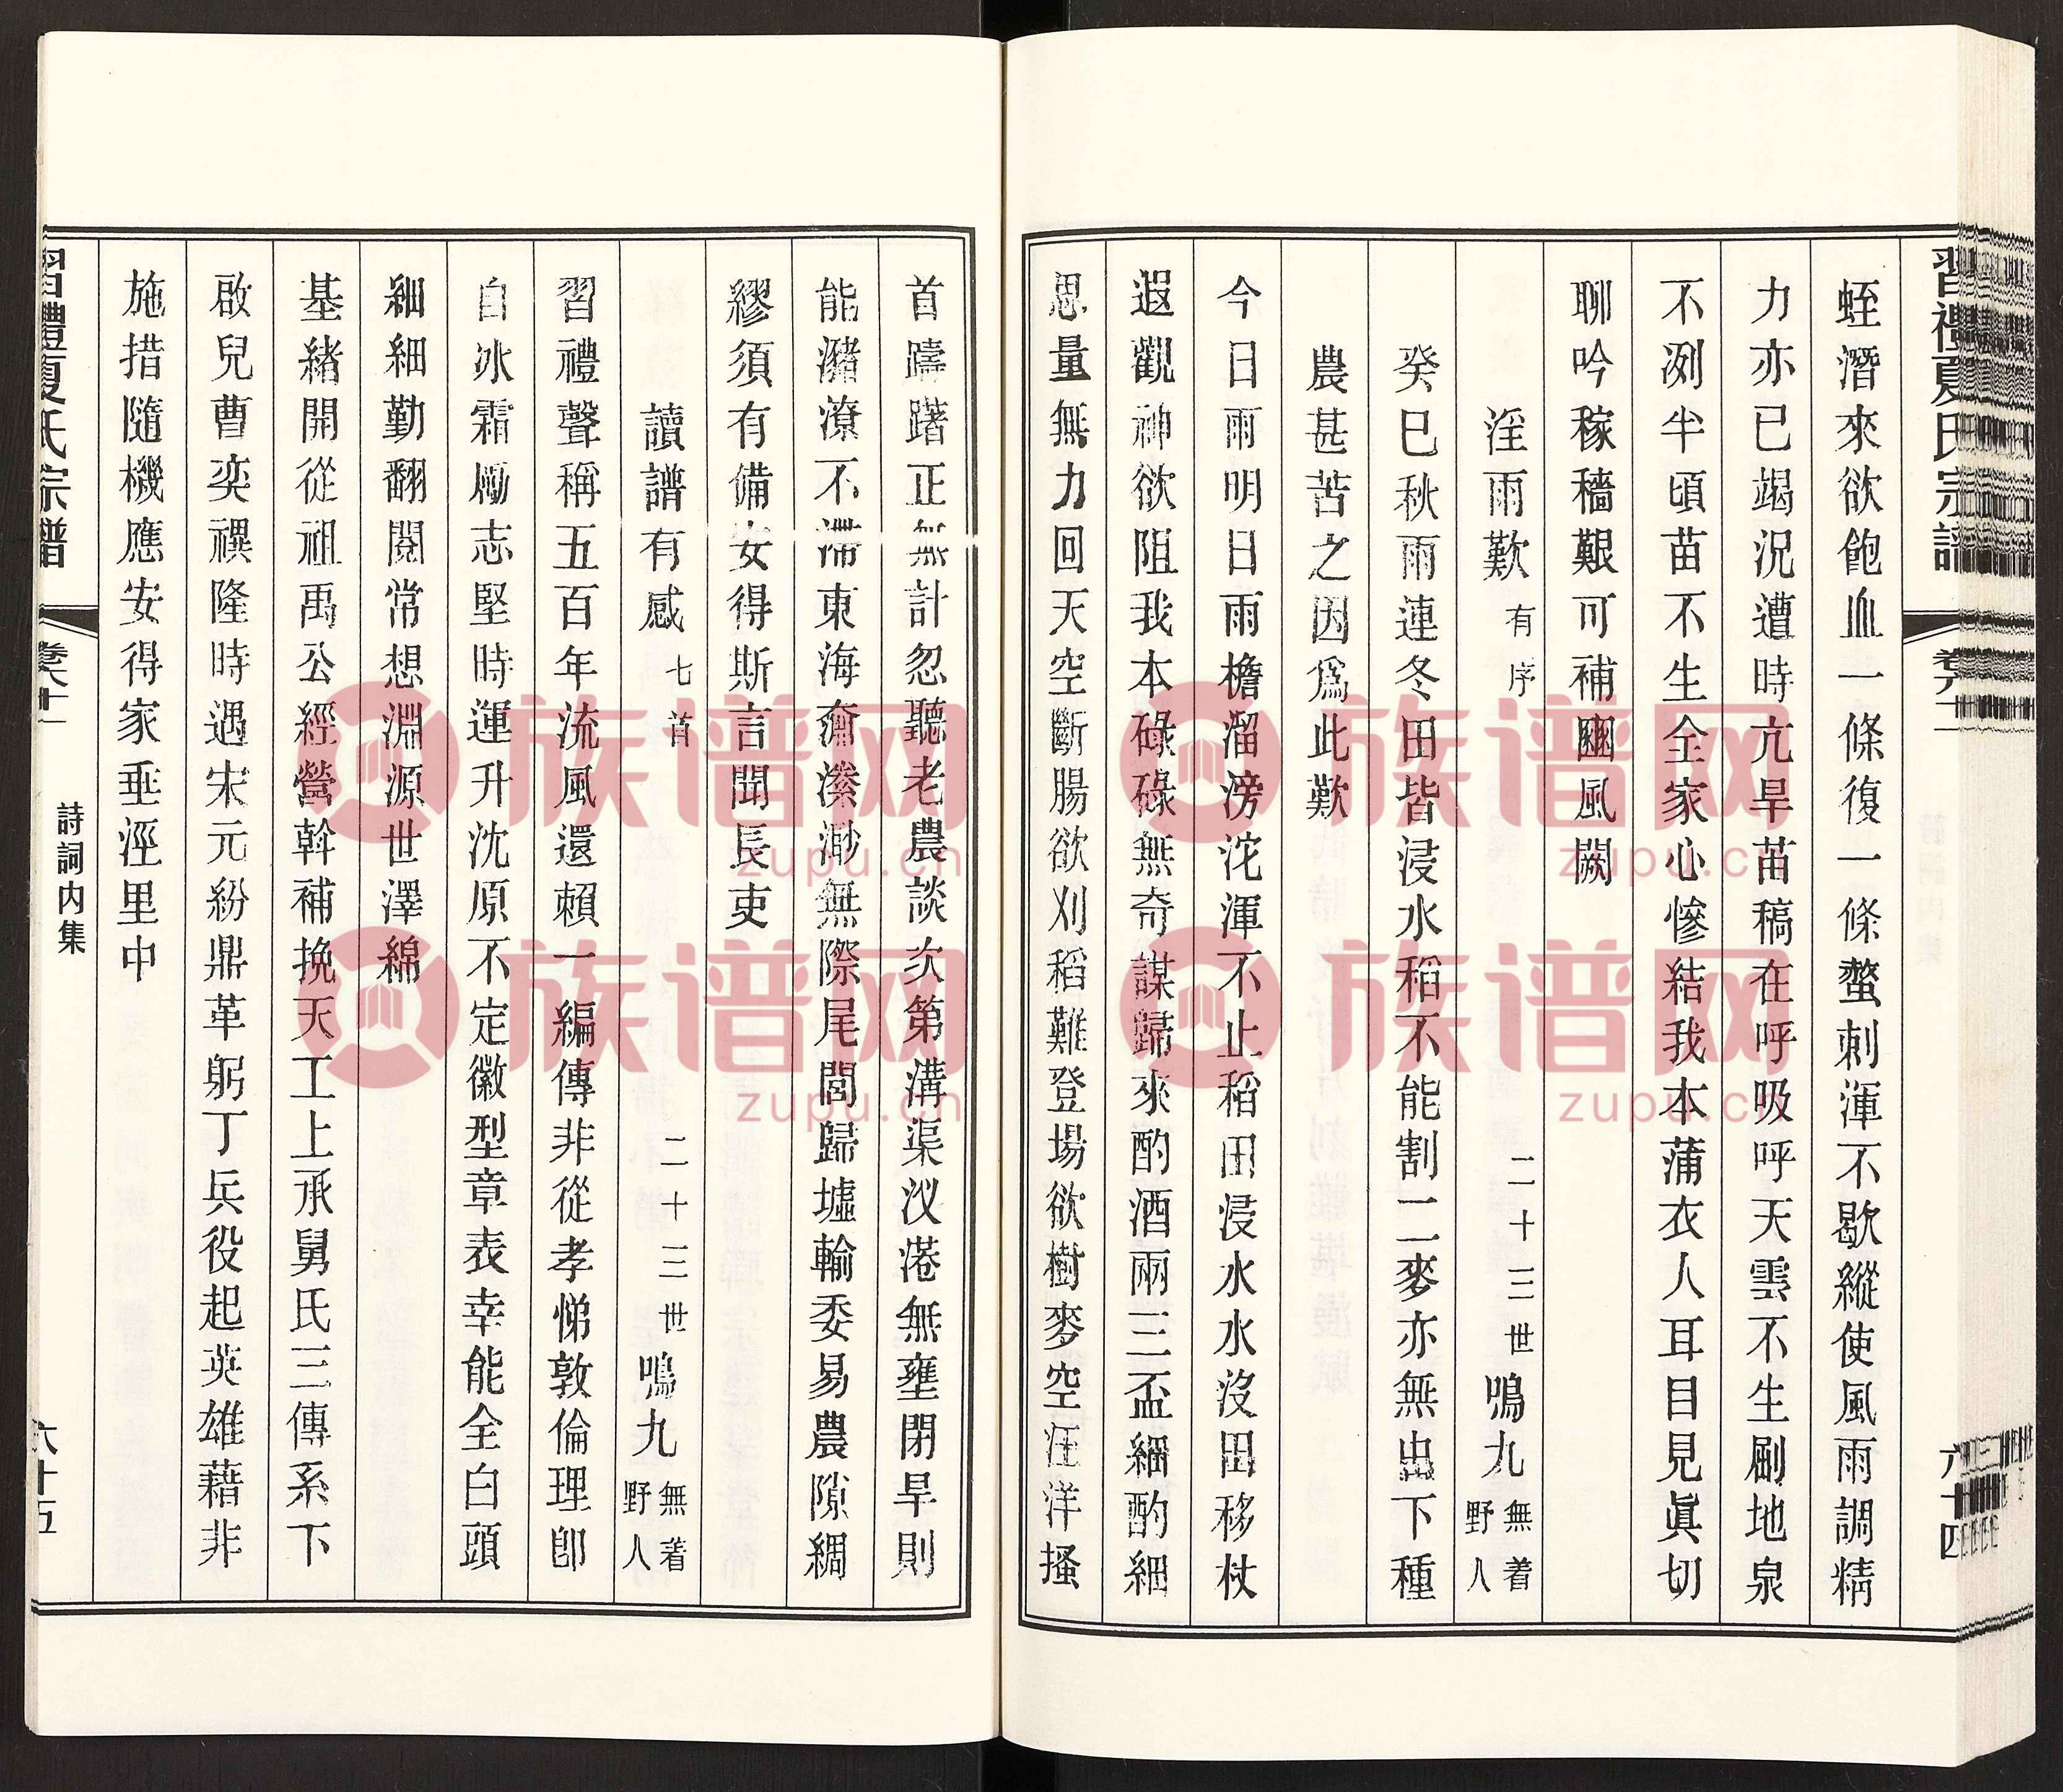 習禮夏氏宗譜
蛭潛來欲飽血一條復一條螫刺渾不歇縱使風雨調精
力亦已竭況遭時亢旱苗稿在呼吸呼天雲不生刷地泉
不冽半頃苗不生全家心慘結我本蒲衣人耳目見眞切
聊吟稼穡艱可補豳風闕
淫雨歎 有序 二十三世 鳴九 無着野人
癸巳秋雨連冬田皆浸水稻不能割二麥亦無出下種
農甚苦之因爲此歎
今日雨明日雨檐溜滂沱渾不止稻田浸水水沒田移杖
遐觀神欲阻我本碌碌無奇謀歸來酌酒兩三盃細酌細
思量無力回天空斷腸欲刈稻難登場欲樹麥空汪洋搔
首躊躇正無計忽聽老農談次第溝渠汊港無壅閉旱則
能瀦潦不滯東海瀰漭渺無際尾閭歸墟輸委易農隙綢
繆須有備安得斯言聞長吏
讀譜有感 七首 二十三世 鳴九 無着野人
習禮聲稱五百年流風還賴一編傳非從孝悌敦倫理卽
自冰霜勵志堅時運升沈原不定徽型章表幸能全白頭
細細勤翻閱常想淵源世澤綿
基緒開從祖禹公經營斡補挽天工上承舅氏三傳系下
啟兒曹奕禩隆時遇宋元紛鼎革躬丁兵役起英雄藉非
施措隨機應安得家垂涇里中
習禮夏氏宗譜
詩詞內集
六十五
族谱网
zupu.cn
族谱网
zupu.cn
族谱网
zupu.cn
族谱网
zupu.cn